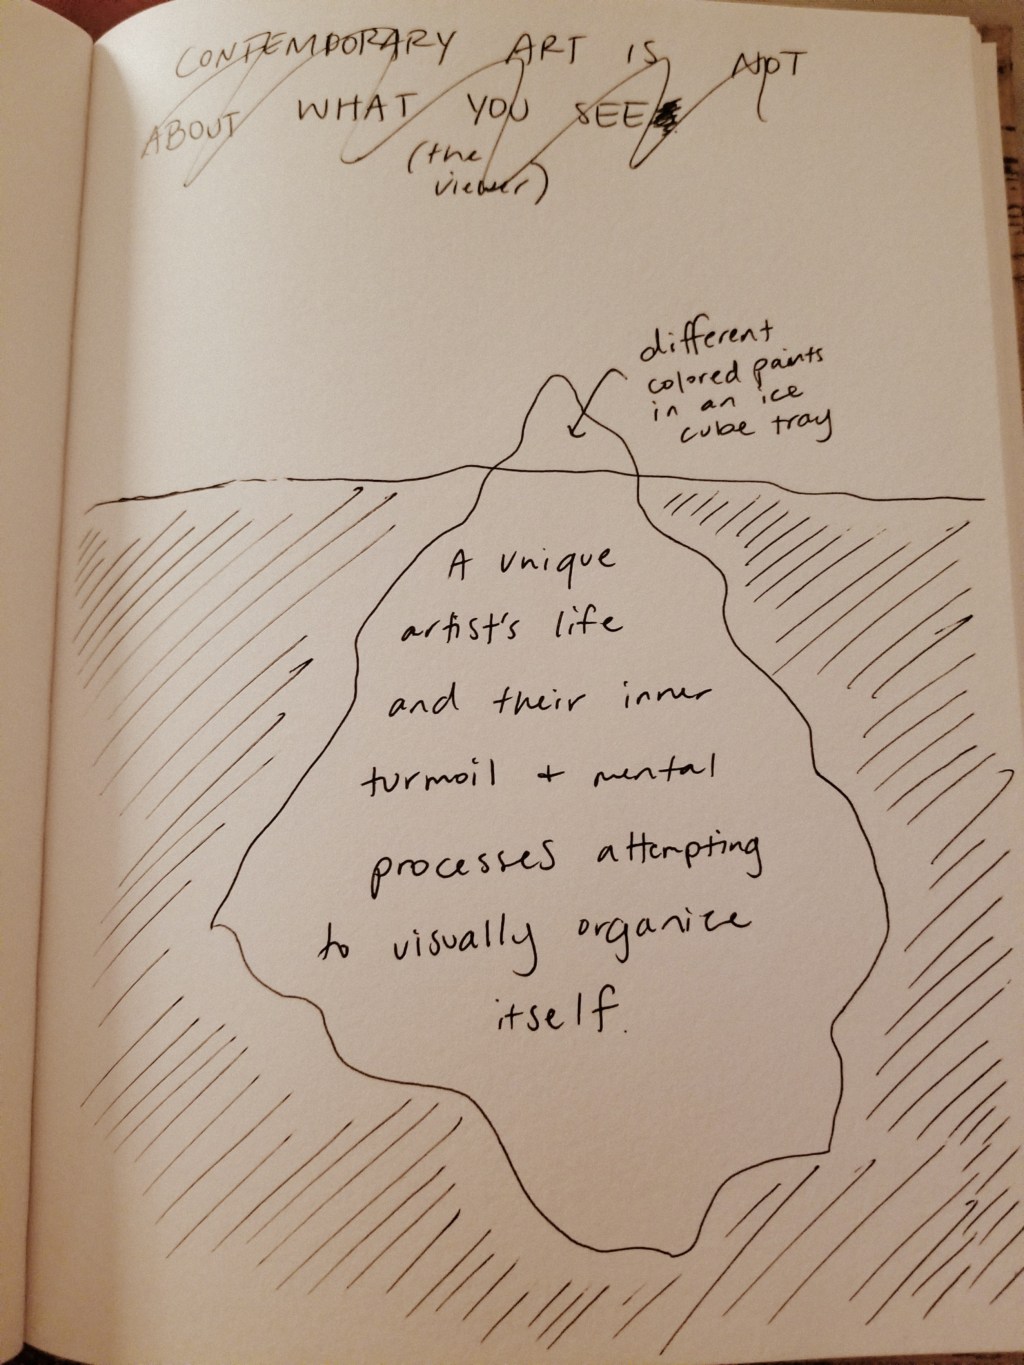 CONTEMPORARY ART IS NOT
ABOUT WHAT YOU SEE
(the
viewer)
different
colored paints
in an ice
cube tray
A unique
artist's life
and their inner
turmoil + mental
processes attempting
to visually organize
itself.